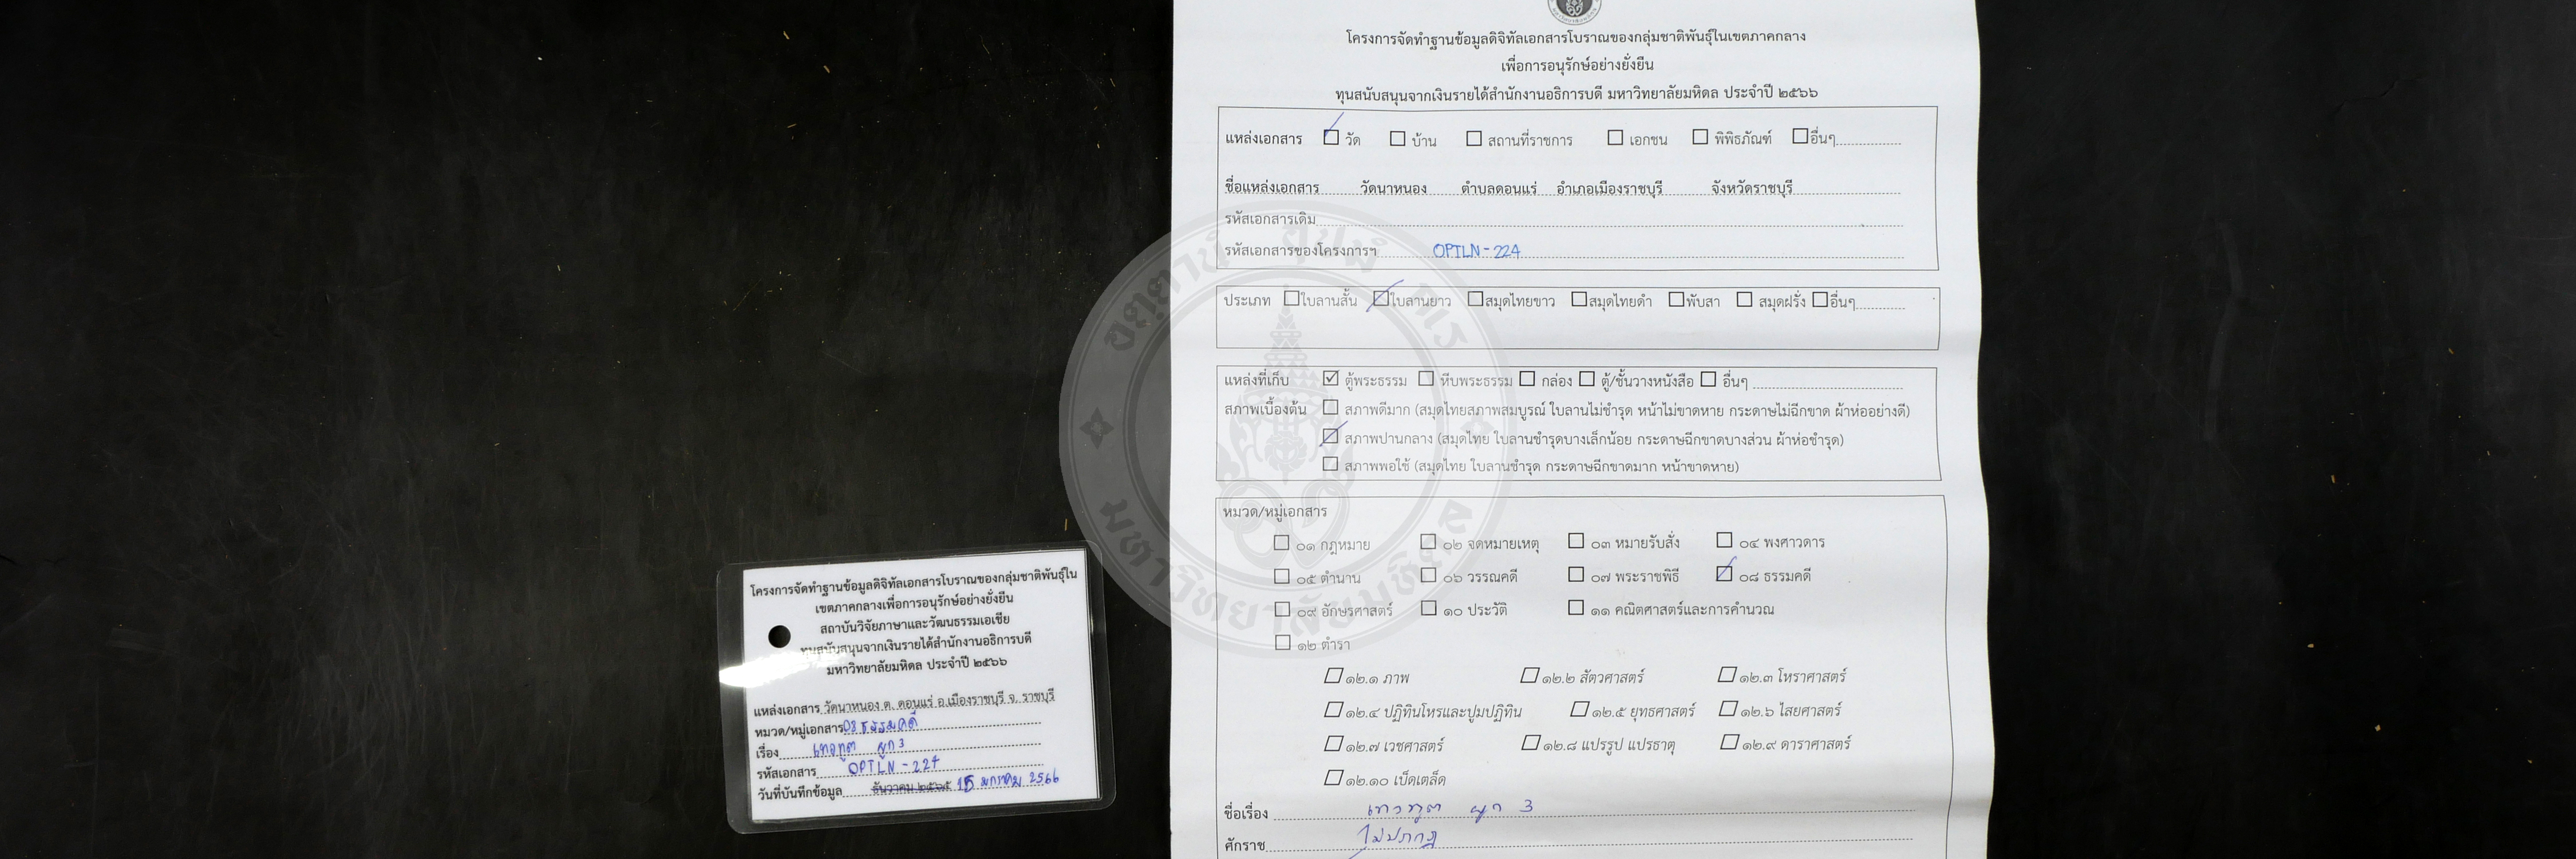 โครงการจัดทำฐานข้อมูลดิจิทัลเอกสารโบราณของกลุ่มชาติพันธุ์ในเขตภาคกลาง
เพื่อการอนุรักษ์อย่างยั่งยืน
ทุนสนับสนุนจากเงินรายได้สำนักงานอธิการบดี มหาวิทยาลัยมหิดล ประจำปี ๒๕๖๖
แหล่งเอกสาร วัด บ้าน สถานที่ราชการ เอกชน พิพิธภัณฑ์ อื่นๆ
ชื่อแหล่งเอกสาร วัดนาหนอง ตำบลดอนแร่ อำเภอเมืองราชบุรี จังหวัดราชบุรี
รหัสเอกสารเดิม
รหัสเอกสารของโครงการฯ OPTLN-224
ประเภท ใบลานสั้น ใบลานยาว สมุดไทยขาว สมุดไทยดำ พับสา สมุดฝรั่ง อื่นๆ
แหล่งที่เก็บ ตู้พระธรรม หีบพระธรรม กล่อง ตู้/ชั้นวางหนังสือ อื่นๆ
สภาพเบื้องต้น สภาพดีมาก (สมุดไทยสภาพสมบูรณ์ ใบลานไม่ชำรุด หน้าไม่ขาดหาย กระดาษไม่ฉีกขาด ผ้าห่ออย่างดี)
สภาพปานกลาง (สมุดไทย ใบลานชำรุดบางเล็กน้อย กระดาษฉีกขาดบางส่วน ผ้าห่อชำรุด)
สภาพพอใช้ (สมุดไทย ใบลานชำรุด กระดาษฉีกขาดมาก หน้าขาดหาย)
หมวด/หมู่เอกสาร
๐๑ กฎหมาย ๐๒ จดหมายเหตุ ๐๓ หมายรับสั่ง ๐๔ พงศาวดาร
๐๕ ตำนาน ๐๖ วรรณคดี ๐๗ พระราชพิธี ๐๘ ธรรมคดี
๐๙ อักษรศาสตร์ ๑๐ ประวัติ ๑๑ คณิตศาสตร์และการคำนวณ
๑๒ ตำรา
๑๒.๑ ภาพ ๑๒.๒ สัตวศาสตร์ ๑๒.๓ โหราศาสตร์
๑๒.๔ ปฏิทินโหรและปูมปฏิทิน ๑๒.๕ ยุทธศาสตร์ ๑๒.๖ ไสยศาสตร์
๑๒.๗ เวชศาสตร์ ๑๒.๘ แปรรูป แปรธาตุ ๑๒.๙ ดาราศาสตร์
๑๒.๑๐ เบ็ดเตล็ด
ชื่อเรื่อง เทวทูต ผูก 3
ศักราช ไม่ปรากฏ
โครงการจัดทำฐานข้อมูลดิจิทัลเอกสารโบราณของกลุ่มชาติพันธุ์ใน
เขตภาคกลางเพื่อการอนุรักษ์อย่างยั่งยืน
สถาบันวิจัยภาษาและวัฒนธรรมเอเชีย
ทุนสนับสนุนจากเงินรายได้สำนักงานอธิการบดี
มหาวิทยาลัยมหิดล ประจำปี ๒๕๖๖
แหล่งเอกสาร วัดนาหนอง ต. ดอนแร่ อ.เมืองราชบุรี จ. ราชบุรี
หมวด/หมู่เอกสาร 08 ธรรมคดี
เรื่อง เทวทูต ผูก 3
รหัสเอกสาร OPTLN-224
วันที่บันทึกข้อมูล ธันวาคม ๒๕๖๕ 15 มกราคม 2566
มหาวิทยาลัยมหิดล